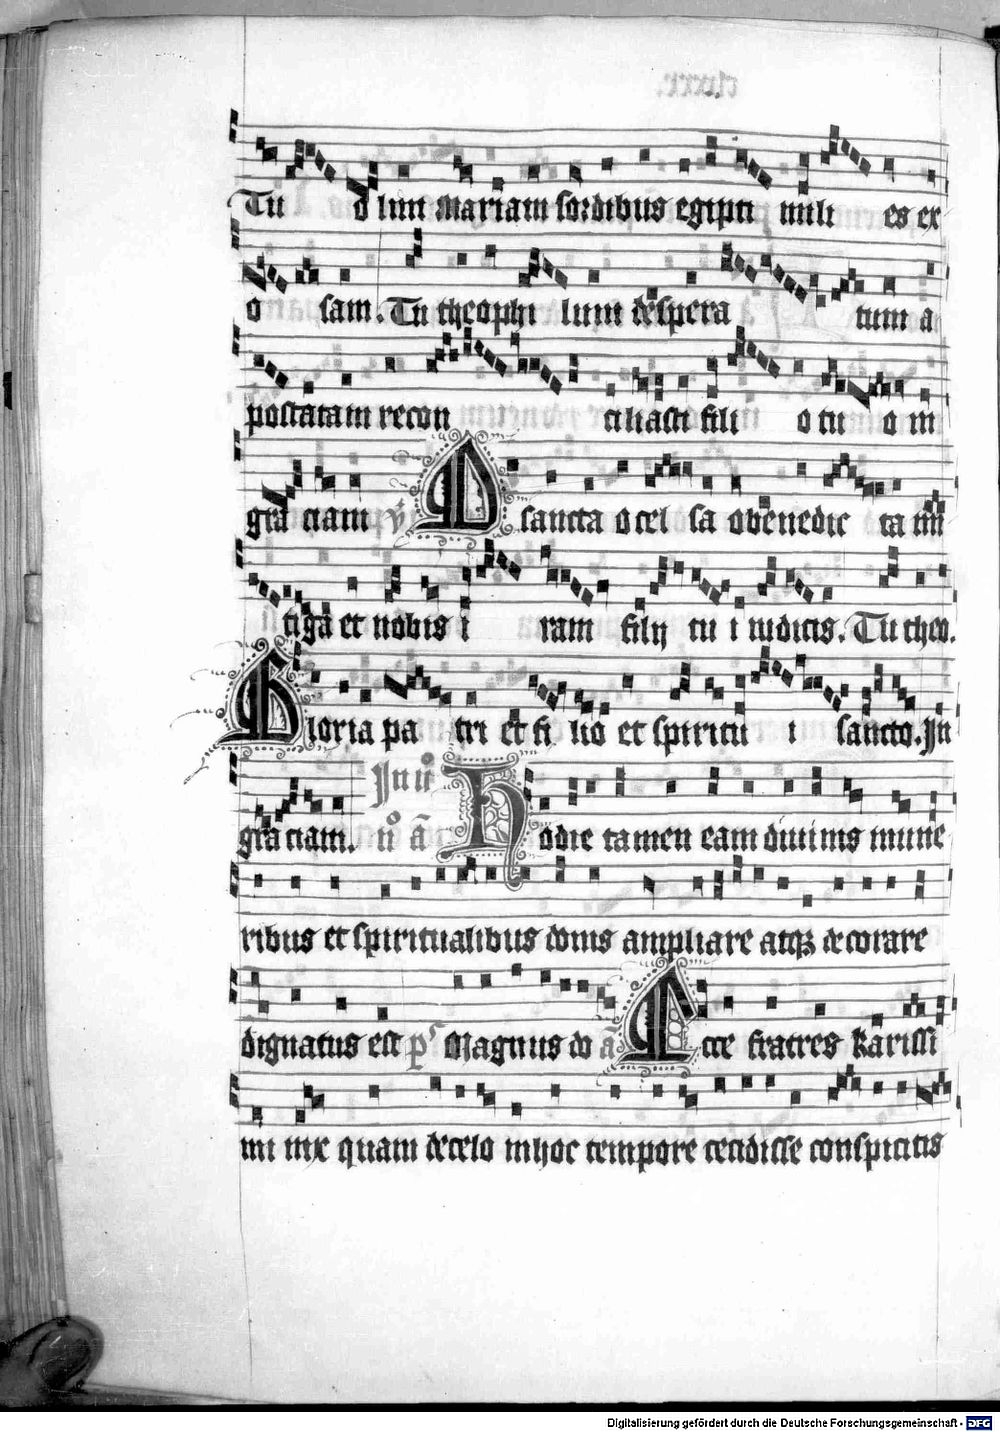 Tu o lim Mariam sordibus egipti mili es ex
o sam. Tu theophi lum despera tum a
postatam recon ciliasti fili o tu o in
gra ciam O sancta o cel sa o benedic ta mi
tiga et nobis i ram filij tu i iudicis. Tu theo.
Gloria pa tri et fi lio et spiritu i sancto. In
gra ciam. Hodie tamen eam diuinis mune
ribus et spiritualibus donis ampliare atqꝫ decorare
dignatus est Magnus do Ecce fratres karissi
mi quam decelo inhoc tempore cecidisse conspicitis
Digitalisierung gefördert durch die Deutsche Forschungsgemeinschaft - DFG